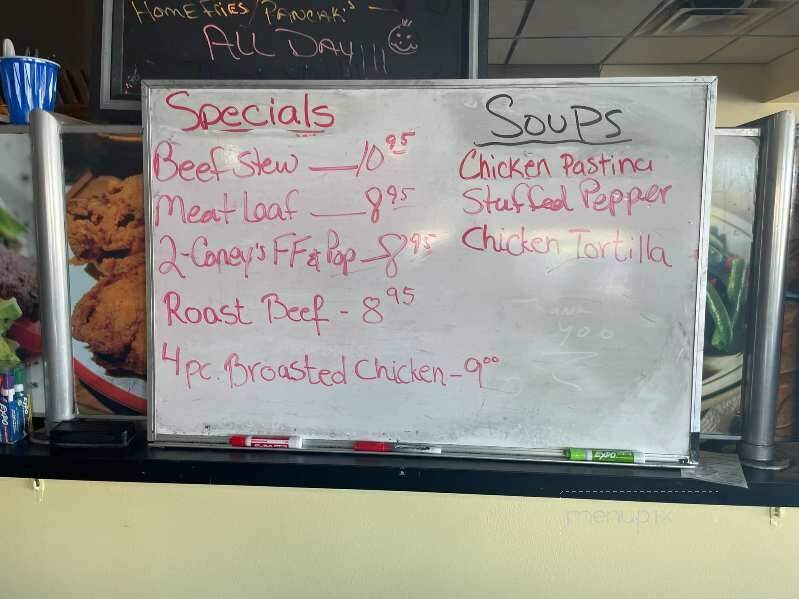 HOMEFRIES/PANCAK's
ALL DAY!!!
Specials
Beef Stew — 10 95
Meat Loaf — 8 95
2-Coney's FF & Pop — 8 95
Roast Beef - 8 95
4 pc. Broasted Chicken - 9 00
Soups
Chicken Pastina
Stuffed Pepper
Chicken Tortilla
YOU
EXPO
EXPO
menupix